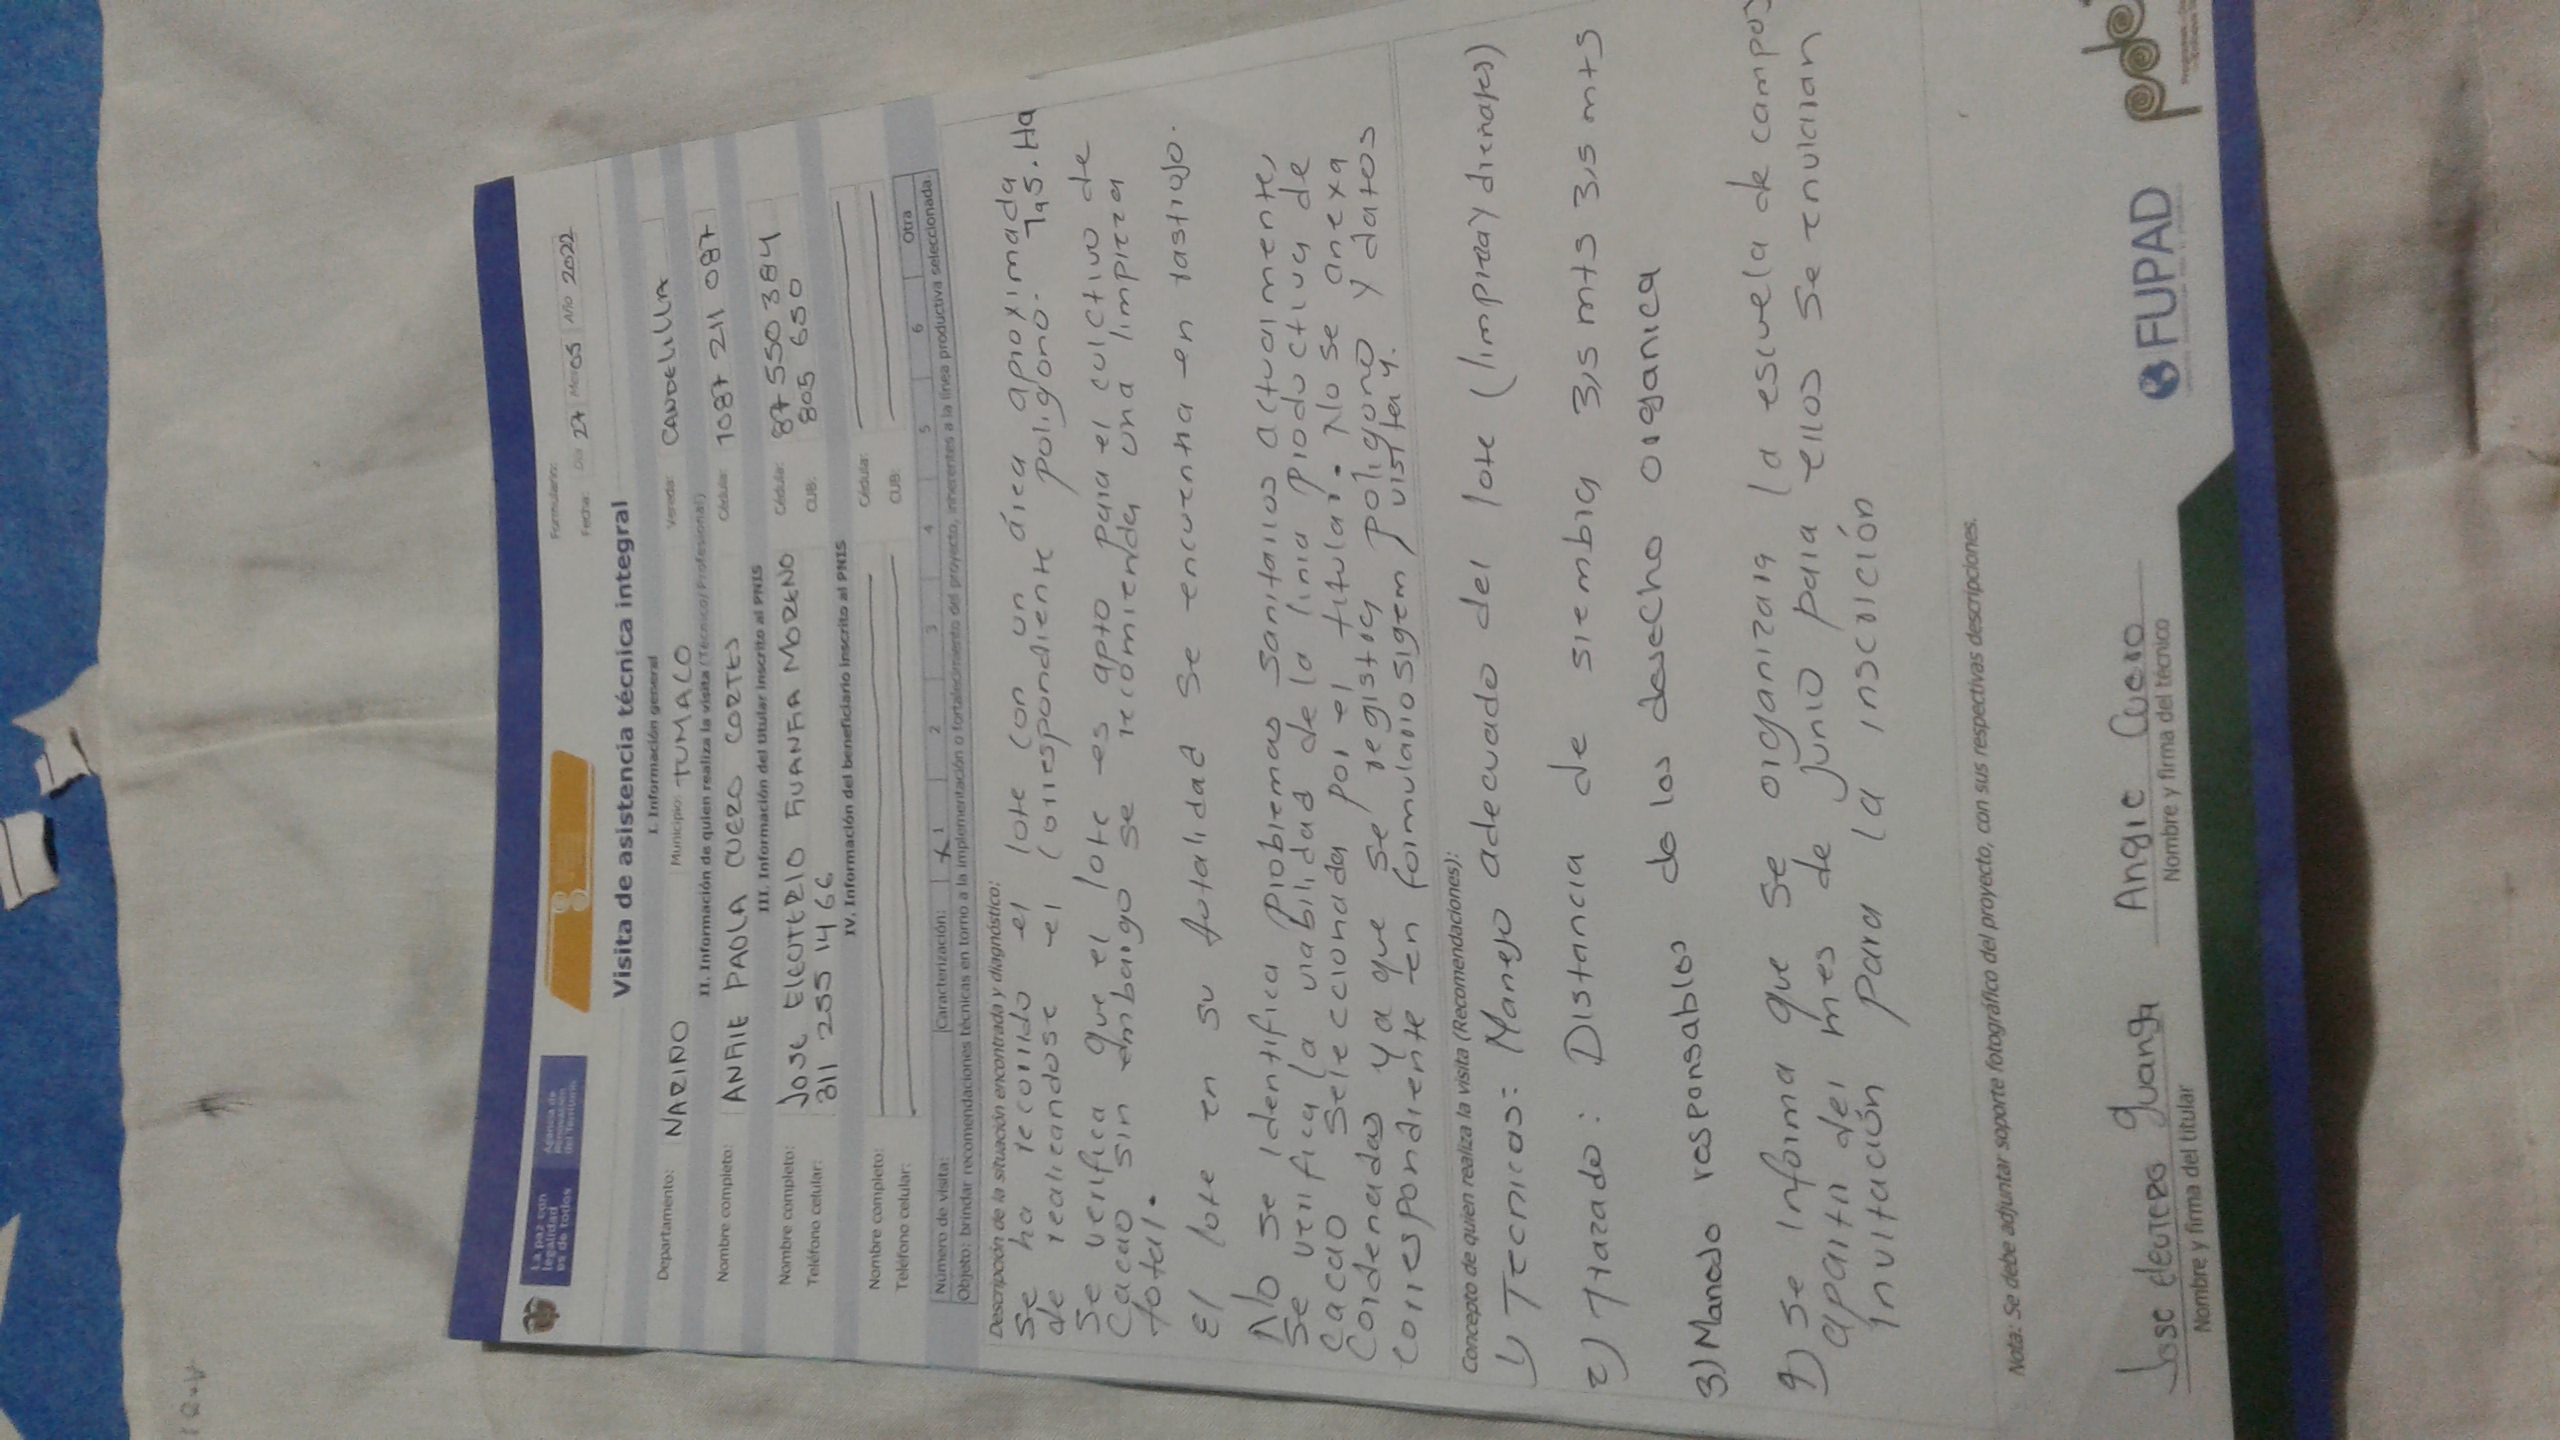 La paz con
legalidad
es de todos
Agencia de
Renovación
del Territorio
Formulario:
Fecha: Día 27 Mes 05 Año 2022
Visita de asistencia técnica integral
I. Información general
Departamento: NARIÑO Municipio: TUMACO Vereda: CANDELILLA
II. Información de quien realiza la visita (Técnico/Profesional)
Nombre completo: ANGIE PAOLA CUERO CORTES Cédula: 1087 211 087
III. Información del titular inscrito al PNIS
Nombre completo: JOSE ELEUTERIO GUANGA MORENO Cédula: 87 550 384
Teléfono celular: 311 255 14 66 CUB: 805 650
IV. Información del beneficiario inscrito al PNIS
Nombre completo: Cédula:
Teléfono celular: CUB:
Número de visita: Caracterización: X 1 2 3 4 5 6 Otra
Objeto: brindar recomendaciones técnicas en torno a la implementación o fortalecimiento del proyecto, inherentes a la línea productiva seleccionada.
Descripción de la situación encontrada y diagnóstico:
Se ha recorrido el lote con un área aproximada
de realicandose el correspondiente poligono. 1,5. Ha
Se verifica que el lote es apto para el cultivo de
Cacao sin embargo se recomienda una limpieza
total.
El lote en su totalidad se encuentra en rastrojo.
No se identifica problemas sanitarios actualmente,
Se verifica la viabilidad de la linia productiva de
cacao seleccionada por el titular. No se anexa
Cordenadas ya que se registra poligono y datos
correspondiente en formulario sigem visita 1.
Concepto de quien realiza la visita (Recomendaciones):
1) Tecnicas: Manejo adecuado del lote (limpia y drenajes)
2) Trazado: Distancia de siembra 3,5 mts 3,5 mts
3) Manejo responsables de los desecho organica
4) Se informa que se organizara la escuela de campos
apartir del mes de junio para ellos se enviarian
invitación para la inscrición
Nota: Se debe adjuntar soporte fotográfico del proyecto, con sus respectivas descripciones.
Jose eleutero guanga Angie Cuero
Nombre y firma del titular Nombre y firma del técnico
FUPAD